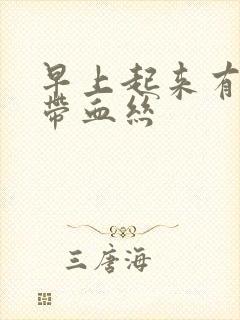 早上起来有
带血丝
三唐海